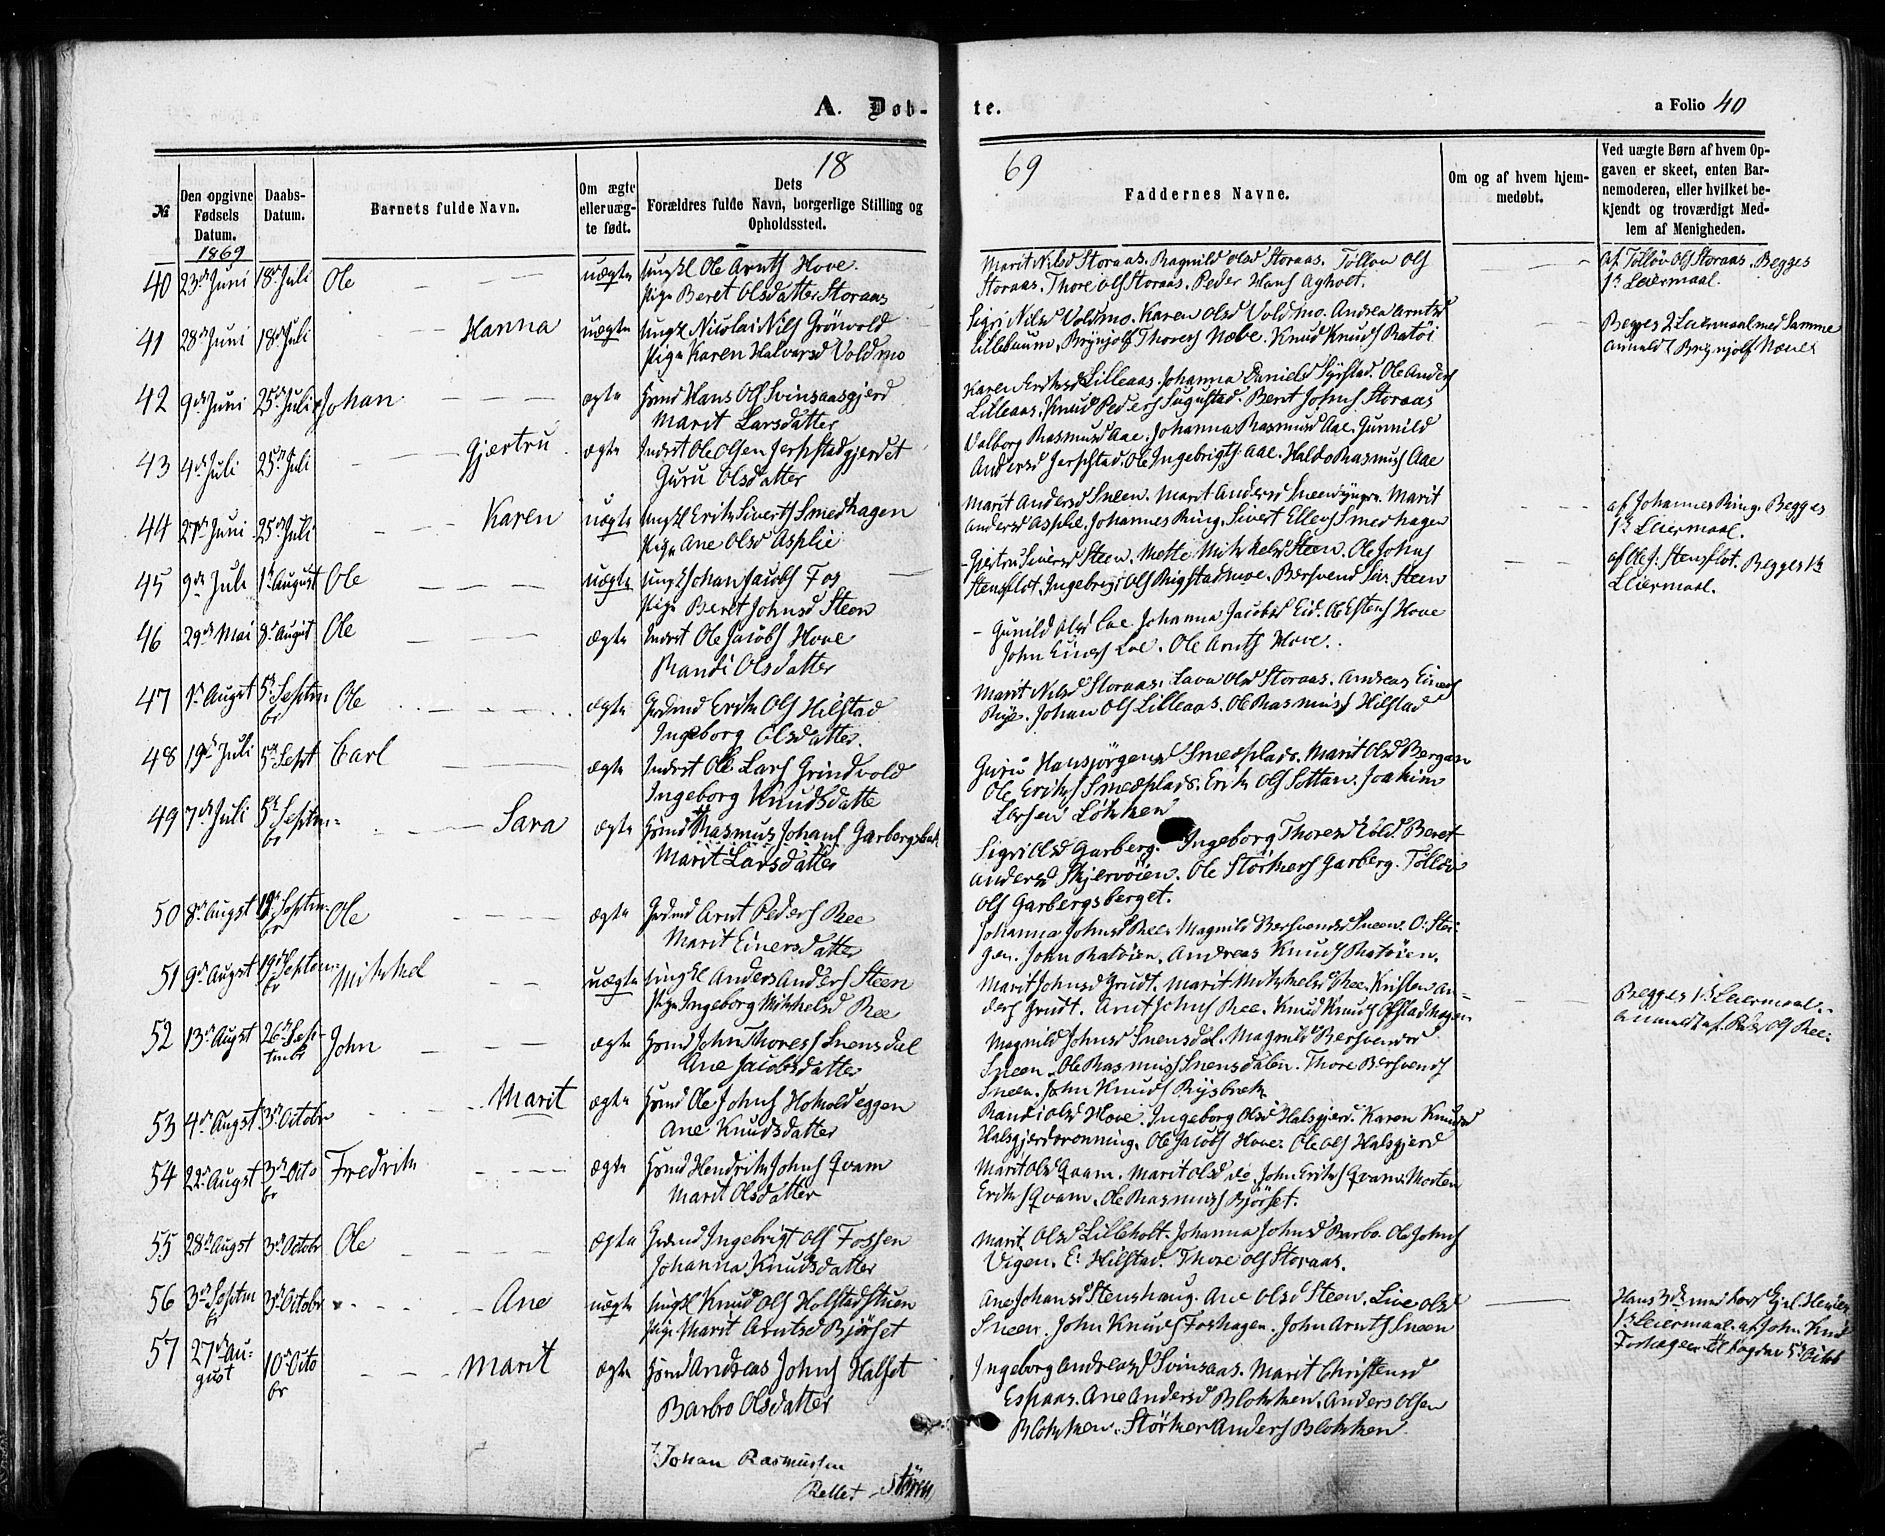 A. Døb-
te.
a Folio 40
18
69
№
Den opgivne
Fødsels
Datum.
1869
Daabs-
Datum.
Barnets fulde Navn.
Om ægte
eller uæg-
te født.
Dets
Forældres fulde Navn, borgerlige Stilling og
Opholdssted.
Faddernes Navne.
Om og af hvem hjem-
medøbt.
Ved uægte Børn af hvem Op-
gaven er skeet, enten Bar-
nemoderen, eller hvilket be-
kjendt og troværdigt Med-
lem af Menigheden.
40 23de Juni 18de Juli Ole uægte Ungkl Ole Arnts Hove.
Pige Beret Olsdatter Storaas
Marit Nilsd Storaas. Ragnild Olsd Storaas. Tolløv Ols
Storaas. Thore Ols Storaas. Peder Hans Agholt.
af Tolløv Ols Storaas. Begges
1st Leiermaal.
41 28de Juni 18de Juli Hanna uægte Ungkl Nicolai Nils Grönvold
Pige Karen Halvorsd Voldmo
Sigri Nilsd Voldmo. Karen Olsd Voldmo. Andrea Arntsd
Lillebuum. Brynjolf Thores Næve. Knud Knuds Ratöi
Begges 2 Leiermaal med Samme
Anmeldt Brynjolf Næve
42 9de Juni 25de Juli Johan ægte Hans Ols Svinsaasgjerd
Marit Larsdatter
Karen Eriksd Lilleaas. Johanna Danielsd Syrstad. Ole Anders
Lilleaas. Knud Peders Sugustad. Berit Johns Storaas
43 4de Juli 25de Juli Gjertru ægte Inderst Ole Olsen Jerpstadgjerdet
Guru Olsdatter
Valborg Rasmusd Aae. Johanna Rasmusd Aae. Gunnild
Andersd Jerpstad. Ole Ingebrigts Aae. Haldo Rasmus Aae
44 27de Juni 25de Juli Karen uægte Ungkl Erik Siverts Smedhagen
Pige Ane Olsd Asplie
Marit Andersd Sneen. Marit Andersd Sneen yngre. Marit
Andersd Asplie. Johannes Ring. Sivert Ellevs Smedhagen
af Johannes Ring. Begges
1st Leiermaal.
45 9de Juli 1ste August Ole uægte Ungk Johan Jacobs Fos
Pige Beret Johnsd Steen
Gjertru Siversd Steen. Mette Mikkelsd Steen. Ole Johns
Stenslot. Ingebrigt Ols Rigstadmoe. Bersvend Steen
af Ole J. Stenslot. Begges 1st
Leiermaal.
46 29de Mai 8de August Ole ægte Inderst Ole Jacobs Hove
Randi Olsdatter
Gunild Olsd Loe. Johanna Jacobsd Eid. Ole Estens Hove
John Einers Loe. Ole Arnts Hove.
47 1ste August 5te Septmbr Ole ægte Erik Ols Hilstad
Ingeborg Olsdatter.
Marit Nilsd Storaas. Lava Olsd Storaas. Andreas Einers
Rye. Johan Ols Lilleaas. Ole Rasmus Hilstad
48 19de Juli 5te Sept Carl ægte Inderst Ole Lars Grindvold
Ingeborg Knudsdatte
Guru Hansjörgensd Smedplads. Marit Olsd Bergan
Ole Eriks Smedplads. Erik Ols Soltan. Joakim
Larsen Løkken
49 7de Juli 5te Septmbr Sara ægte Rasmus Johans Garbergsbak
Marit Larsdatter
Sigri Olsd Garberg. Ingeborg Thoresd Beret
Andersd Skjervöien. Ole Störkers Garberg. Tolløv
Ols Garbergsberget.
50 8de August Septmbr Ole ægte Arnt Peders Ree
Marit Einersdatter
Johanna Johnsd Ree. Magnild Bersvendsd Sneen. O: Stei
gen. John Ratöien. Andreas Knuds Ratöien.
51 9de August 19de Septembr Mikkel uægte Ungkl Anders Anders Steen
Pige Ingeborg Mikkelsd Ree
Marit Johnsd Grudt. Marit Mikkelsd Ree. Kristen An-
ders Grudt. Arnt Johns Ree. Knud Knuds Ofstadhagen
Begges 1st Leiermaal.
Anmeldt af Peder Ols Ree.
52 13de August 26de September John ægte John Thores Snensdal
Ane Jacobsdatter
Magnild Johnsd Snensdal. Magnild Bersvendsd
Sneen. Ole Rasmus Snensdalen. Thore Bersvends
Sneen. John Knuds Rysbrek
53 4de August 3de Octobr Marit ægte Ole Johns Hokoldeggen
Ane Knudsdatter
Randi Olsd Hove. Ingeborg Olsd Halsgjerd. Karen Knudsd
Halsgjerdsronning. Ole Jacobs Hove. Ole Ols Halsgjerd
54 22de August 3de Octobr Fredrik ægte Hendrik Johns Qvam
Marit Olsdatter
Marit Olsd Qvam. Marit Olsd do. John Eriks Qvam. Morten
Eriks Qvam. Ole Rasmus Björset.
55 28de August 3de Octobr Ole ægte Ingebrigt Ols Fossen
Johanna Knudsdatter
Marit Olsd Lilleholt. Johanna Johnsd Barbo. Ole Johns
Vigen. E: Hilstad. Thore Ols Storaas.
56 3de Septmbr 3de Octobr Ane uægte Ungkl Knud Ols Holstadstuen
Pige Marit Arntsd Björset
Ane Johansd Stenshaug. Ane Olsd Steen. Live Olsd
Sneen. John Knuds Foshagen. John Arnts Sneen
Hans 3de med
1st Leiermaal. af John Knud
Foshagen
57 27de August 10de Octobr Marit ægte Andreas Johns Halset
Barbro Olsdatter
Ingeborg Andreasd Svinsaas. Marit Christensd
Espaas. Ane Andersd Blokken. Anders Olsen
Blokken. Störker Anders Blokken.
Johan Rasmussen
Rettet Stören